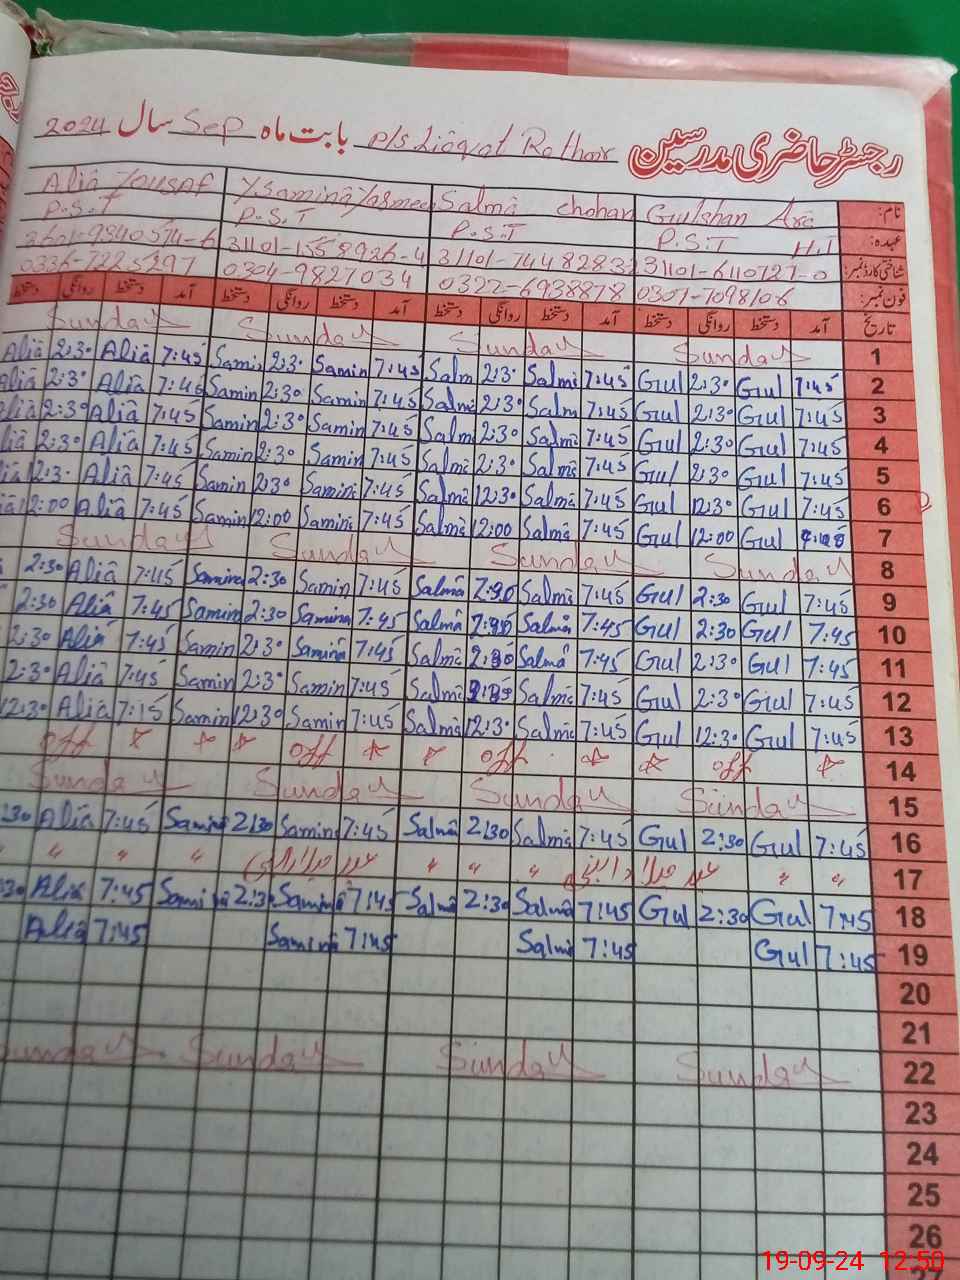 رجسٹر حاضری مدرسین P/s Liaqat Rathor بابت ماہ Sep سال 2024
نام: Gulshan Ara Salma chohan Y.Samina Yasmeen Alia Yousaf
عہدہ: H.T P.S.T P.S.T P.S.T P.S.T
شناختی کارڈ نمبر: 31101-6110727-0 31101-7448283 31101-1558926-4
فون نمبر: 0301-7098106 0322-6938878 0304-9827034 0336-7225297
تاریخ آمد دستخط روانگی دستخط آمد دستخط روانگی دستخط آمد دستخط روانگی دستخط آمد دستخط روانگی دستخط
1 Sunday Sunday Sunday Sunday
2 7:45 Gul 2:30 Gul 7:45 Salma 2:30 Salm 7:45 Samin 2:30 Samin 7:45 Alia 2:30 Alia
3 7:45 Gul 2:30 Gul 7:45 Salm 2:30 Salma 7:45 Samin 2:30 Samin 7:45 Alia 2:30 Alia
4 7:45 Gul 2:30 Gul 7:45 Salma 2:30 Salm 7:45 Samin 2:30 Samin 7:45 Alia 2:30 Alia
5 7:45 Gul 2:30 Gul 7:45 Salma 2:30 Salma 7:45 Samin 2:30 Samin 7:45 Alia 2:30 Alia
6 7:45 Gul 12:30 Gul 7:45 Salma 12:30 Salma 7:45 Samina 2:30 Samin 7:45 Alia 2:30
7 Gul 12:00 Gul 7:45 Salma 12:00 Salma 7:45 Samina 12:00 Samin 7:45 Alia 12:00
8 Sunday Sunday Sunday Sunday
9 7:45 Gul 2:30 Gul 7:45 Salma Salma 7:45 Samin 2:30 Samina 7:45 Alia 2:30
10 7:45 Gul 2:30 Gul 7:45 Salma Salma 7:45 Samina 2:30 Samin 7:45 Alia 2:30
11 7:45 Gul 2:30 Gul 7:45 Salma 2:30 Salma 7:45 Samina 2:30 Samin 7:45 Alia 2:30
12 7:45 Gul 2:30 Gul 7:45 Salma Salma 7:45 Samin 2:30 Samin 7:45 Alia 2:30
13 7:45 Gul 12:30 Gul 7:45 Salma 12:30 Salma 7:45 Samin 12:30 Samin 7:15 Alia 12:30
14 off off off off
15 Sunday Sunday Sunday Sunday
16 7:45 Gul 2:30 Gul 7:45 Salma 2:30 Salma 7:45 Samin 2:30 Samina 7:45 Alia 30
17 " " عید میلاد النبی " " " عید میلاد النبی " " " "
18 7:45 Gul 2:30 Gul 7:45 Salma 2:30 Salma 7:45 Samina 2:30 Samina 7:45 Alia 30
19 7:45 Gul 7:45 Salma 7:45 Samina 7:45 Alia
20
21
22 Sunday Sunday Sunday Sunday
23
24
25
26
27
19-09-24 12:50